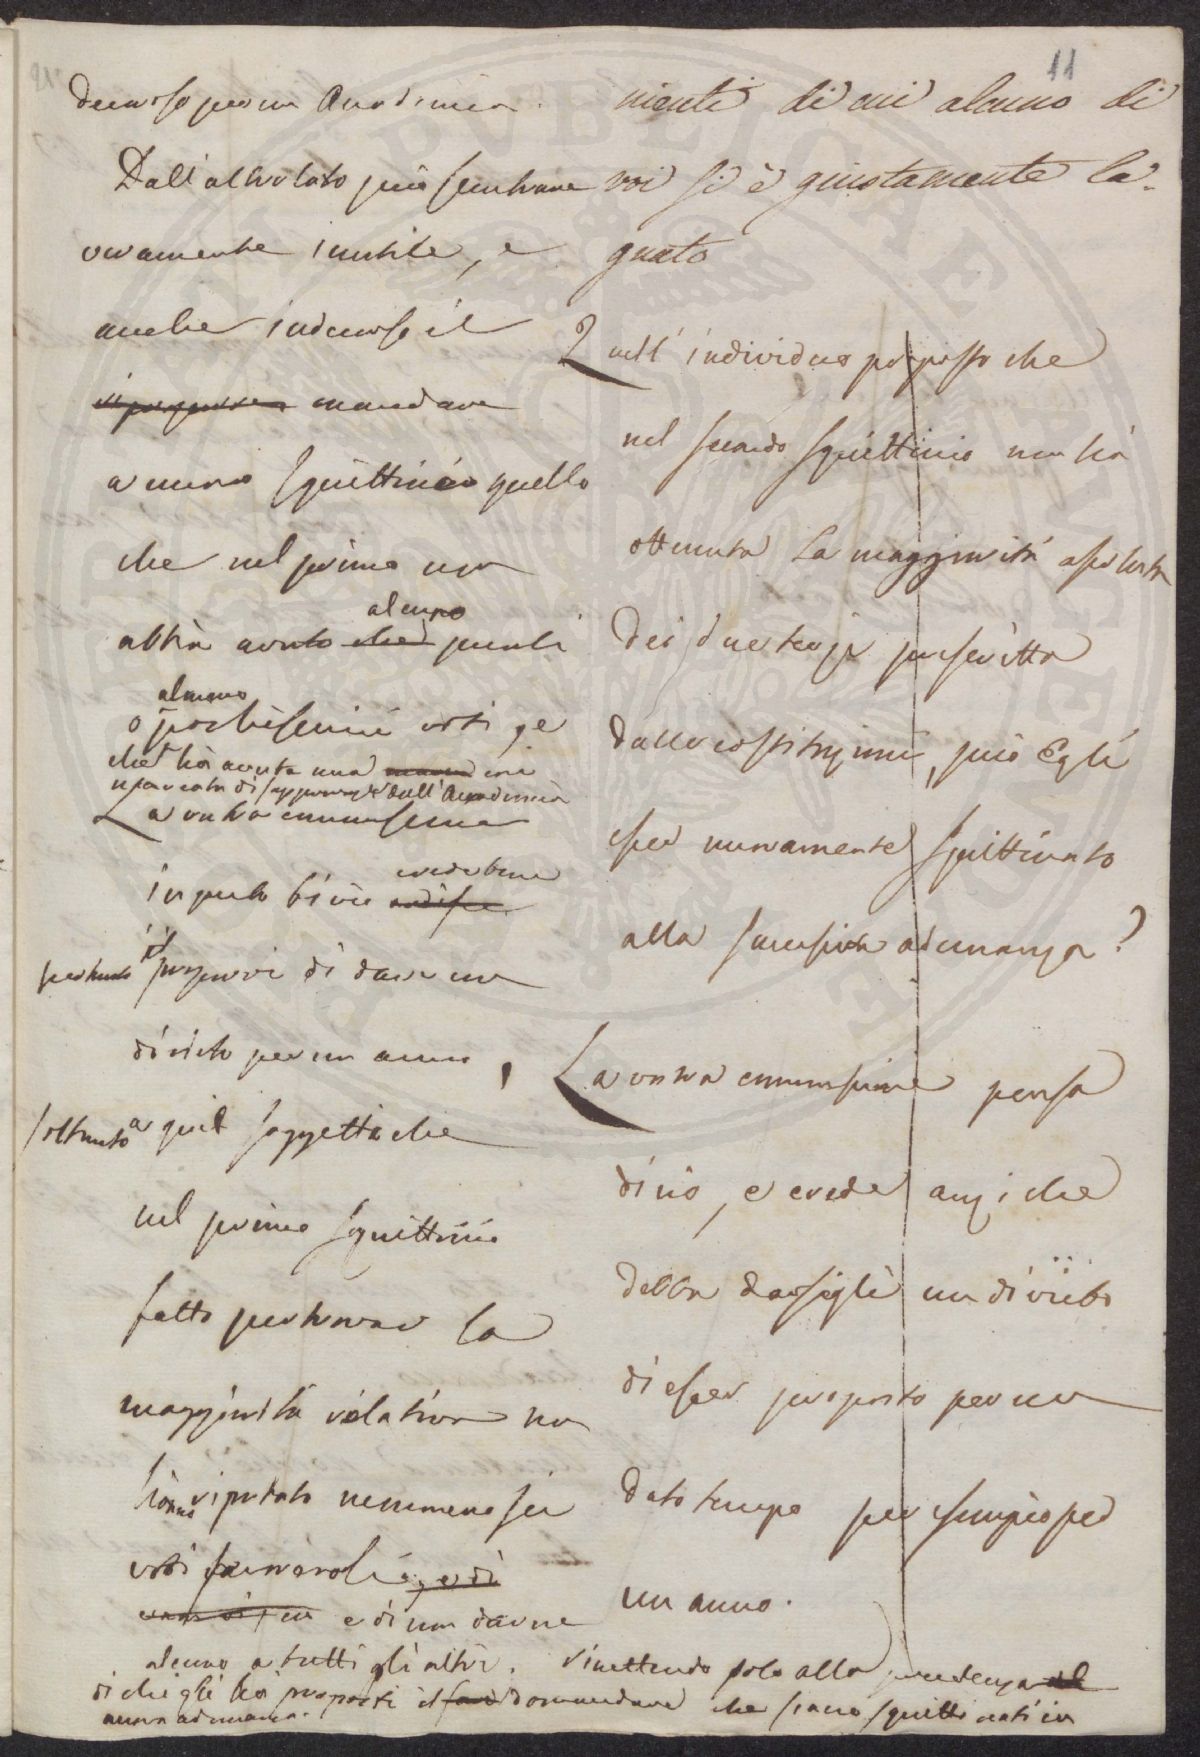 11
decoroso per un Accademia.
Dall'altro lato può sembrare
veramente inutile, e
anche indecoroso il
mandare
a nuovo squittinio quello
che nel primo non
abbia avuto che alcuno punti
o almeno pochissimi voti, e
che hà avuta una
dall'Accademia
La vostra commissione
in questo bivio crede bene
pertanto il proporvi di dare un
divieto per un anno,
soltanto a quel soggetto che
nel primo squittinio
fatto per trovar la
maggiorità relativa non
hanno riportato nemmeno sei
voti favorevoli, e di
e di non darne
alcuno a tutti gli altri. rimettendo solo alla prudenza
di chi gli hà proposti il domandare che siano squittinati in
nuova adunanza.
niente di cui alcuno di
voi si è giustamente la-
gnato
Quell'individuo proposto che
nel secondo squittinio non hà
ottenuta la maggiorità assoluta
dei due terzi prescritta
dalle costituzioni, può Egli
esser nuovamente squittinato
alla successiva adunanza?
La vostra commissione pensa
di nò, e crede anzi che
debba darsigli un divieto
di esser proposto per un
dato tempo per esempio per
un anno.